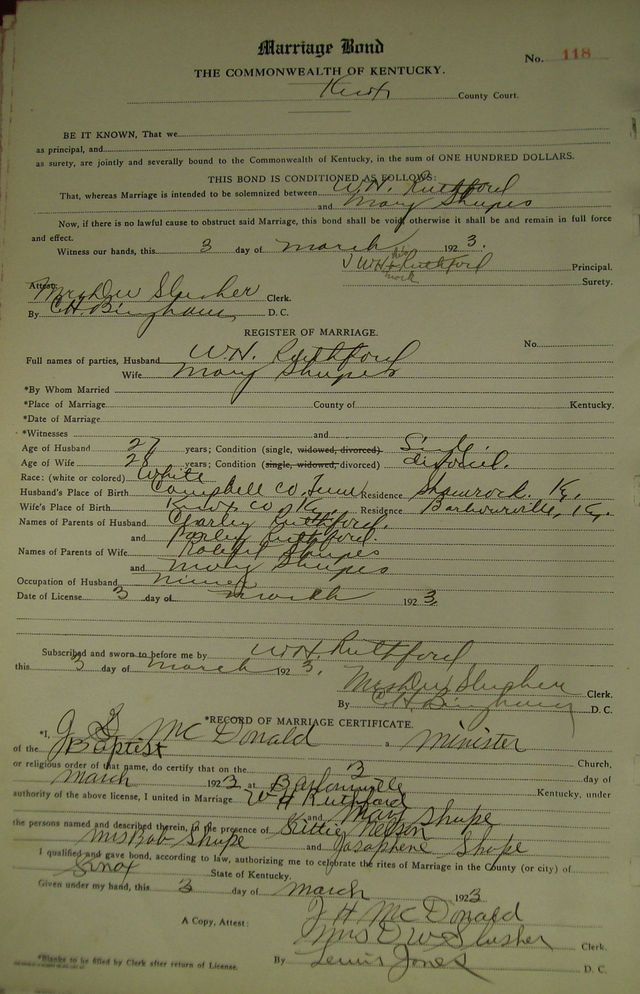 Marriage Bond
No. 118
THE COMMONWEALTH OF KENTUCKY.
Knox County Court.
BE IT KNOWN, That we
as principal, and
as surety, are jointly and severally bound to the Commonwealth of Kentucky, in the sum of ONE HUNDRED DOLLARS.
THIS BOND IS CONDITIONED AS FOLLOWS:
That, whereas Marriage is intended to be solemnized between W.H. Ruthford
and Mary Shupes
Now, if there is no lawful cause to obstruct said Marriage, this bond shall be void, otherwise it shall be and remain in full force
and effect.
Witness our hands, this 3 day of march 1923.
W H his x mark Ruthford Principal.
Surety.
Attest: Mrs D W Slusher Clerk.
By C.H. Bingham D. C.
REGISTER OF MARRIAGE.
No.
Full names of parties, Husband W.H. Ruthford
Wife Mary Shupes
*By Whom Married
*Place of Marriage County of Kentucky.
*Date of Marriage
*Witnesses and
Age of Husband 27 years; Condition (single, widowed, divorced)
Age of Wife 28 years; Condition (single, widowed, divorced) divorced.
Race: (white or colored) White
Husband's Place of Birth Campbell Co, Tenn Residence Shamrock. Ky.
Wife's Place of Birth Knox Co Ky. Residence Barbourville, Ky.
Names of Parents of Husband Charley Ruthford.
and Ruthford.
Names of Parents of Wife Robert Shupes
and Mary Shupes
Occupation of Husband miner
Date of License 3 day of march 1923
Subscribed and sworn to before me by W H Ruthford
this 3 day of march 1923.
Mrs D W Slusher Clerk.
By C H Bingham D. C.
*RECORD OF MARRIAGE CERTIFICATE.
*I, J S McDonald a minister
of the Baptist Church,
or religious order of that name, do certify that on the 3 day of
march 1923 at Kentucky, under
authority of the above license, I united in Marriage W H Ruthford
and Mary Shupe
the persons named and described therein, in the presence of Nelson
Mrs Bob Shupe and Josaphene Shupe
I qualified and gave bond, according to law, authorizing me to celebrate the rites of Marriage in the County (or city) of
Knox State of Kentucky.
Given under my hand, this 3 day of march 1923
J H McDonald
A Copy, Attest: Mrs D W Slusher Clerk.
By Lewis Jones D. C.
*Blanks to be filled by Clerk after return of License.